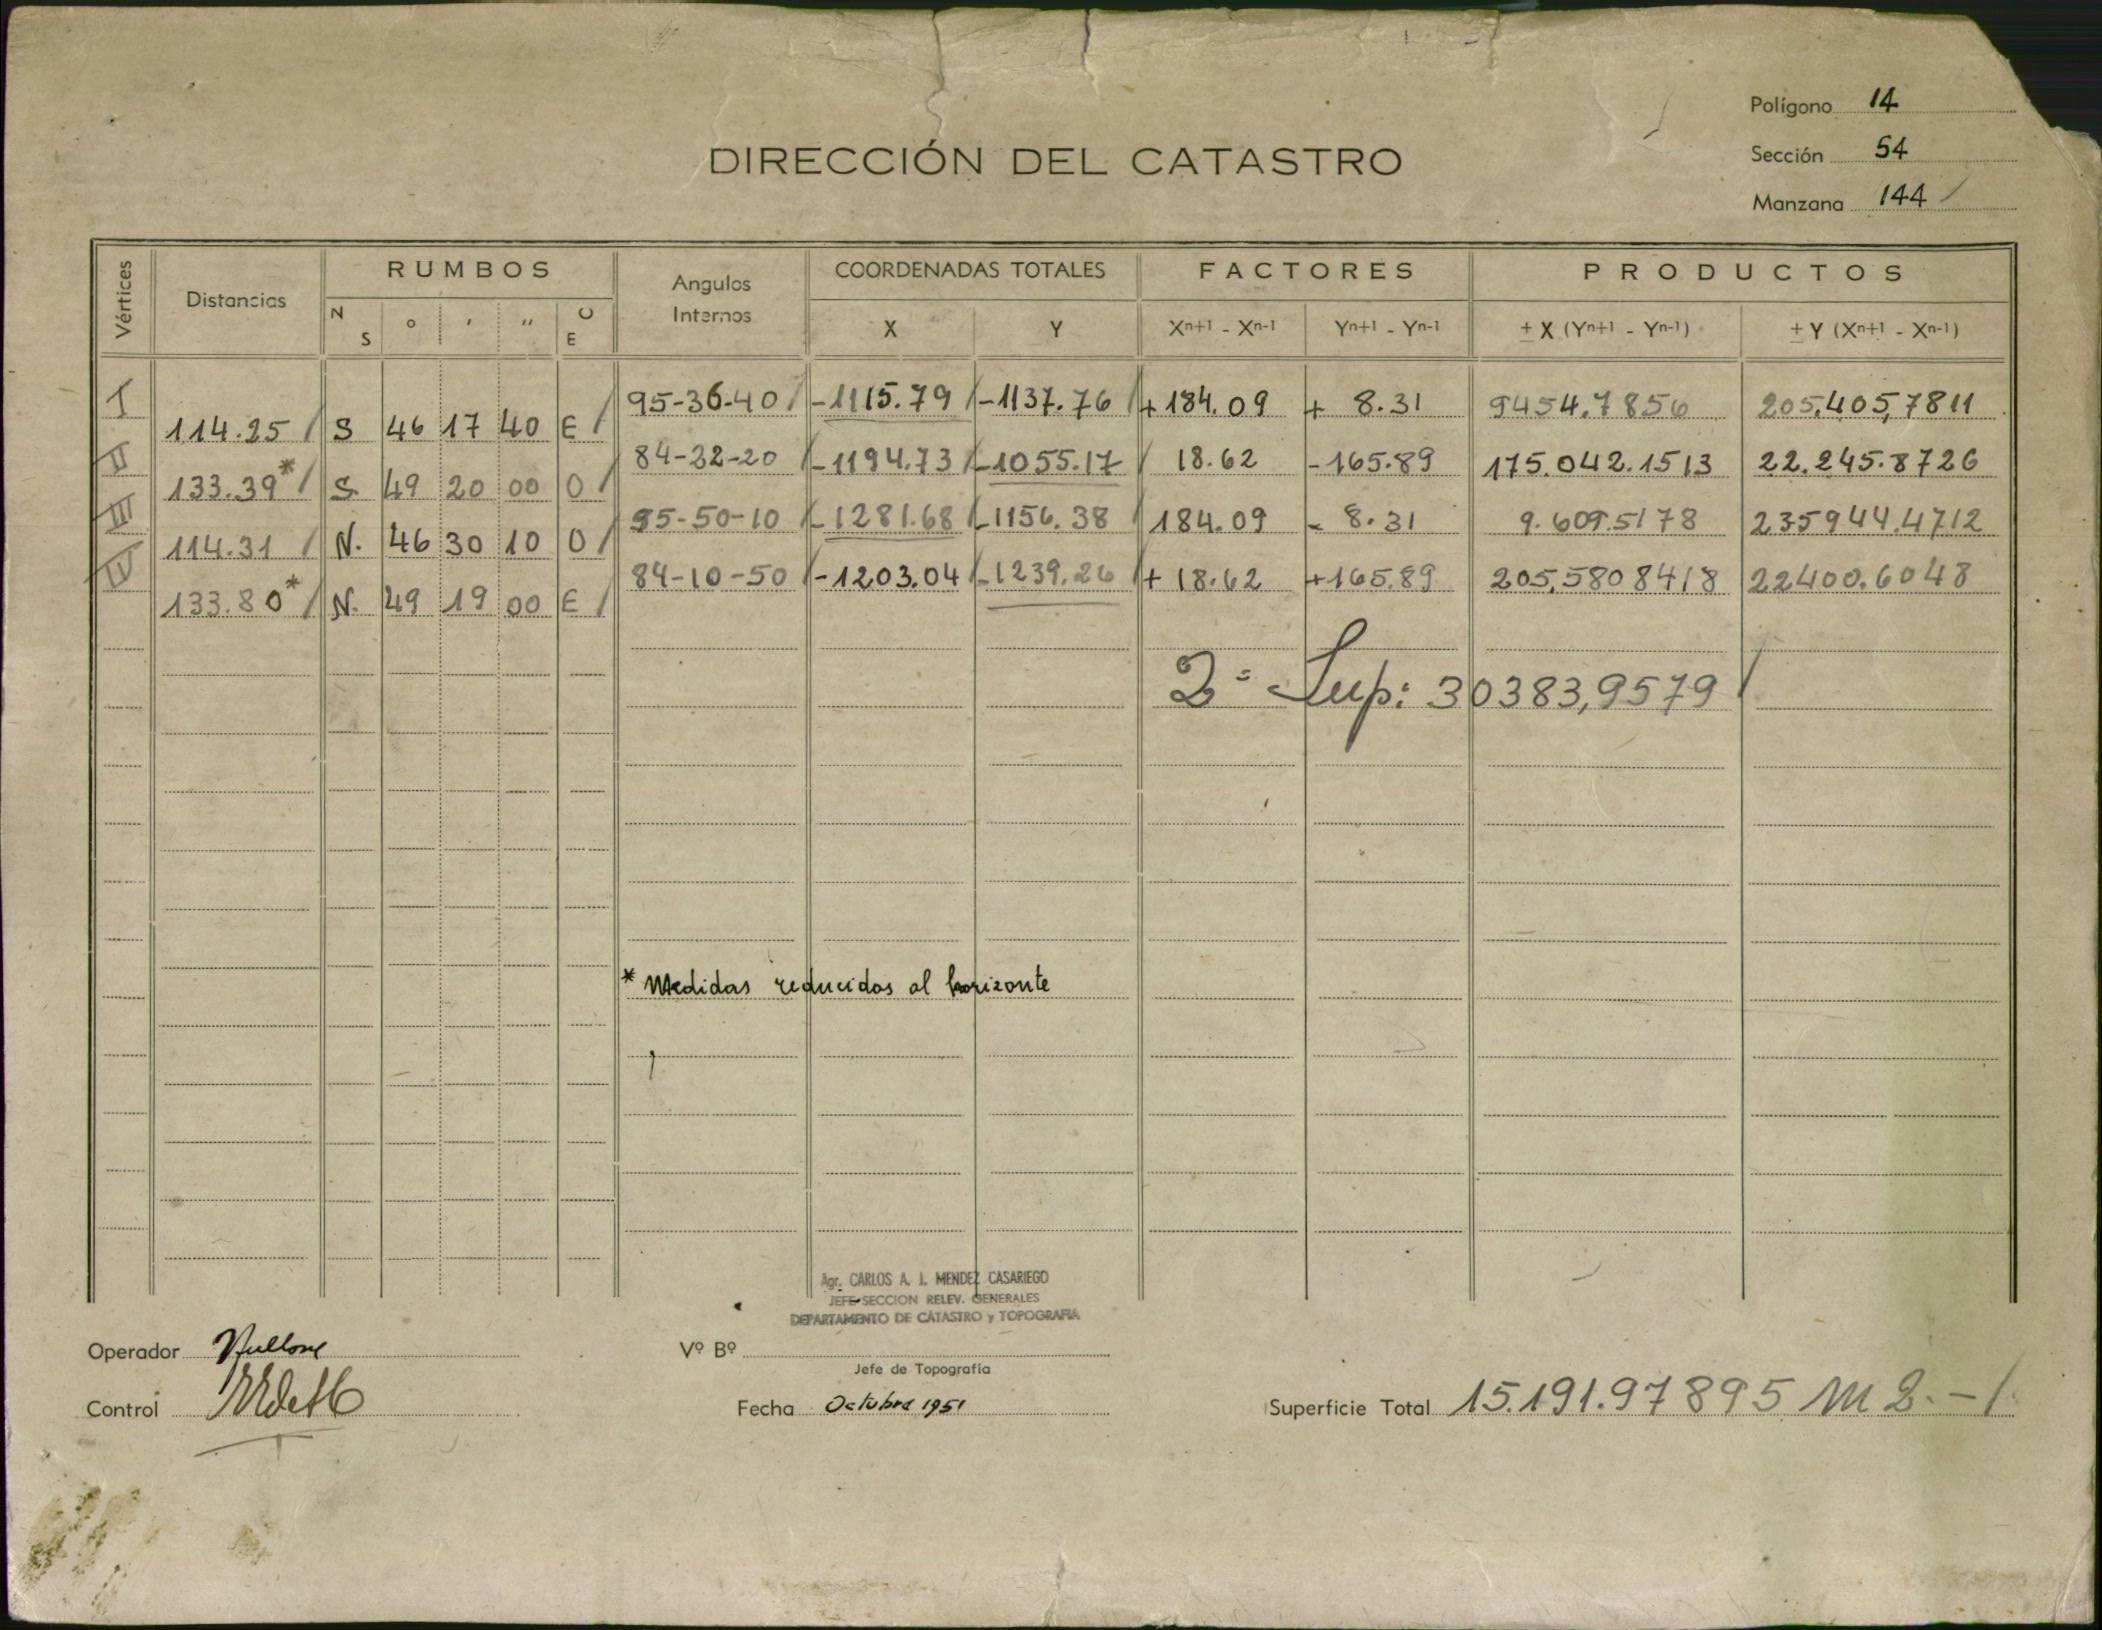 Polígono 14
DIRECCIÓN DEL CATASTRO
Sección 54
Manzana 144
Vértices Distancias RUMBOS Angulos Internos COORDENADAS TOTALES FACTORES PRODUCTOS
N S ° ' '' O E X Y Xn+1 - Xn-1 Yn+1 - Yn-1 ± X (Yn+1 - Yn-1) ± Y (Xn+1 - Xn-1)
I 95-36-40 -1115.79 -1137.76 +184.09 + 8.31 9454.7856 205.405,7811
114.25 S 46 17 40 E
II 84-22-20 -1194.73 -1055.17 18.62 -165.89 175.042.1513 22.245.8726
133.39* S. 49 20 00 O
III 95-50-10 -1281.68 -1156.38 184.09 - 8.31 9.609.5178 235944.4712
114.31 N. 46 30 10 O
IV 84-10-50 -1203.04 -1239.26 +18.62 +165.89 205,5808418 22400.6048
133.80* N. 49 19 00 E
2= Sup: 30383,9579
* Medidas reducidas al horizonte
Agr. CARLOS A. J. MENDEZ CASARIEGO
JEFE SECCION RELEV. GENERALES
DEPARTAMENTO DE CATASTRO y TOPOGRAFIA
Operador
Vº Bº
Jefe de Topografía
Control
Fecha Octubre 1951
Superficie Total 15.191.97895 m2.-